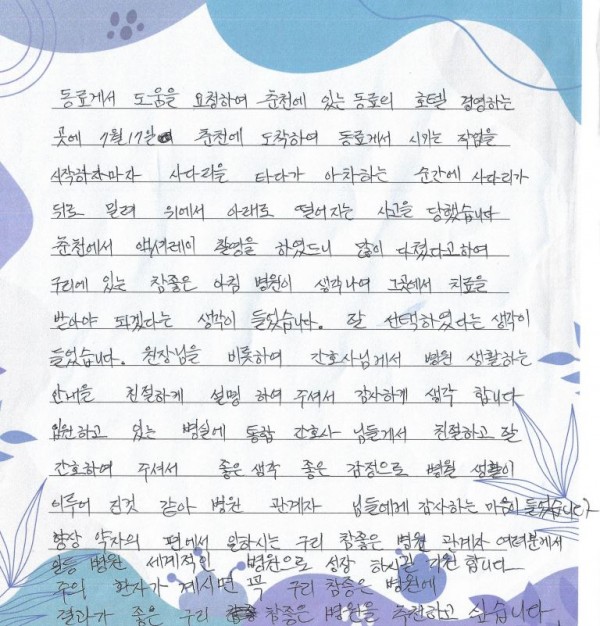 동료께서 도움을 요청하여 춘천에 있는 동료의 호텔 경영하는
곳에 7월 17일 춘천에 도착하여 동료께서 시키는 작업을
시작하자마자 사다리를 타다가 아차하는 순간에 사다리가
뒤로 밀려 위에서 아래로 떨어지는 사고를 당했습니다
춘천에서 엑서레이 촬영을 하였드니 많이 다쳤다고하여
구리에 있는 참좋은 아침 병원이 생각나여 그곳에서 치료를
받아야 되겠다는 생각이 들었습니다. 잘 선택하였다는 생각이
들었습니다. 원장님을 비롯하여 간호사님께서 병원 생활하는
안내을 친절하게 설명 하여 주셔서 감사하게 생각 합니다
입원하고 있는 병실에 통합 간호사 님들께서 친절하고 잘
간호하여 주셔서 좋은생각 좋은 감정으로 병원 생활이
이루어 진것 같아 병원 관계자 님들에게 감사하는 마음이 들었습니다
항상 약자의 편에서 일하시는 구리 참좋은 병원 관계자 여러분께서
일등 병원 세계적인 병원으로 성장 하시길 기원 합니다
주의 환자가 계시면 꼭 구리 참좋은 병원에
결과가 좋은 구리 참좋은 병원을 추천하고 싶습니다